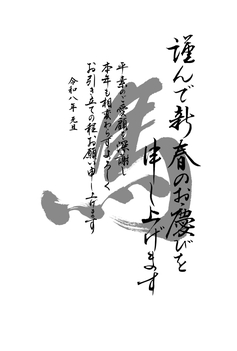 謹んで新春のお慶びを
申し上げます
平素のご愛顧を深謝し
本年も相変わらずよろしく
お引き立ての程お願い申し上げます
令和八年 元旦
馬